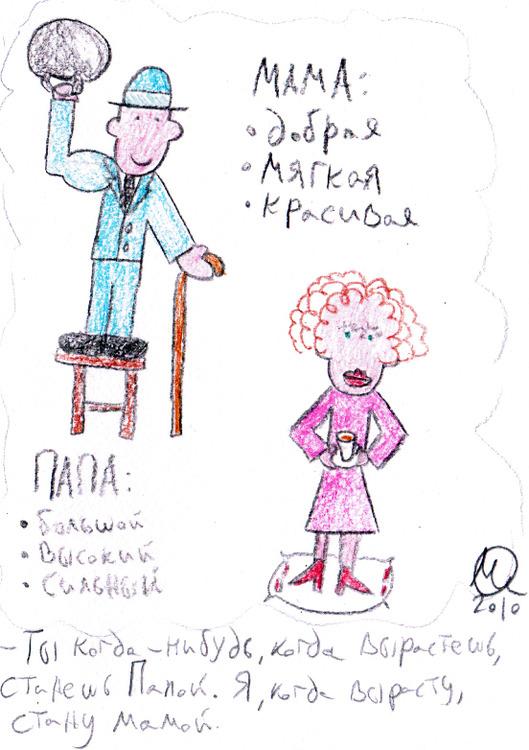 МАМА:
• добрая
• мягкая
• красивая
ПАПА:
• большой
• высокий
• сильный
2010
– Ты когда-нибудь, когда вырастешь,
станешь Папой. Я, когда вырасту,
стану мамой.